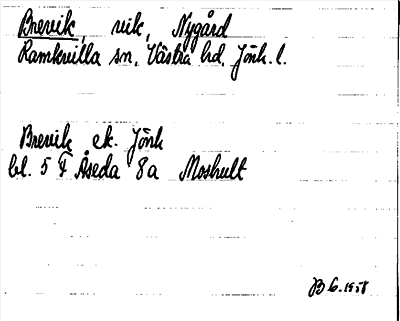 Brevik, vik, Nygård
Ramkvilla sn, Västra hd, Jönk. l.
Brevik ek. Jönk
bl. 5 F Åseda 8a Moshult
B 6. 1958